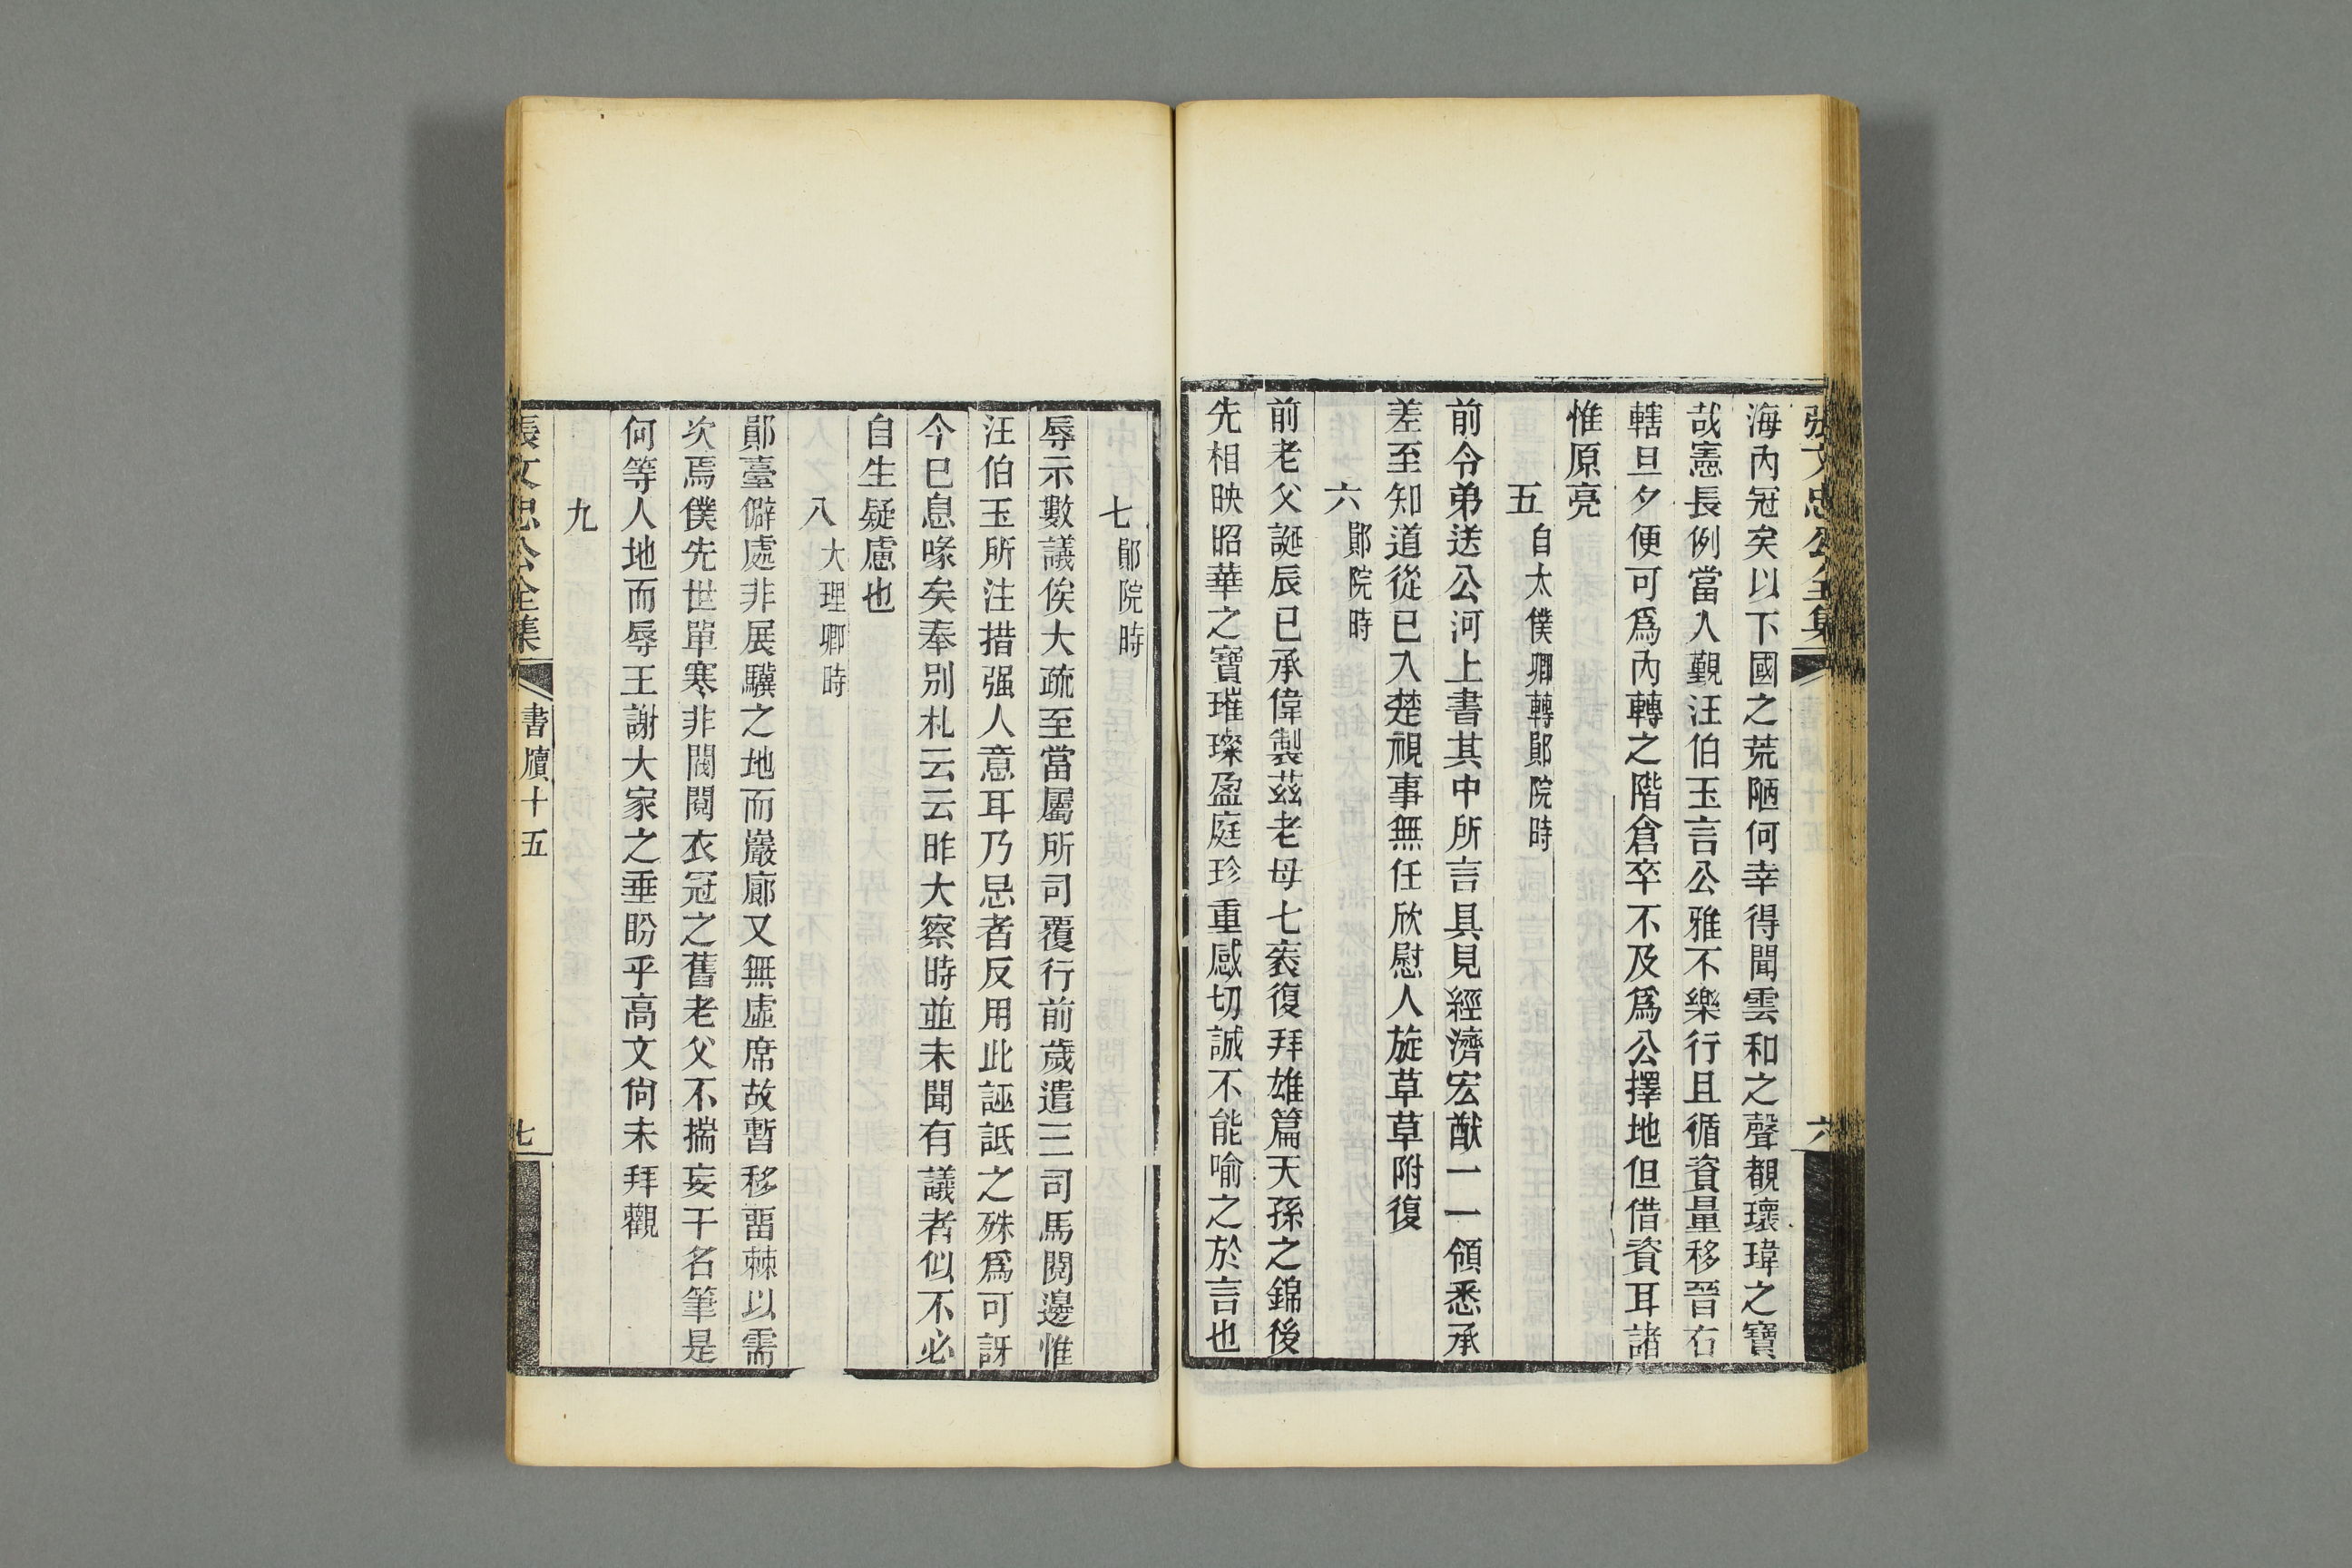 張文忠公全集
六
海內冠矣以下國之荒陋何幸得聞雲和之聲覩瓌瑋之寶
哉憲長例當入覲汪伯玉言公雅不樂行且循資量移晉右
轄旦夕便可爲內轉之階倉卒不及爲公擇地但借資耳諸
惟原亮
五 自太僕卿轉鄖院時
前令弟送公河上書其中所言具見經濟宏猷一一領悉承
差至知道從已入楚視事無任欣慰人旋草草附復
六 鄖院時
前老父誕辰已承偉製茲老母七袠復拜雄篇天孫之錦後
先相映昭華之寶璀璨盈庭珍重感切誠不能喻之於言也
七 鄖院時
辱示數議俟大疏至當屬所司覆行前歲遣三司馬閱邊惟
汪伯玉所注措强人意耳乃忌者反用此誣詆之殊爲可訝
今已息喙矣奉別札云云昨大察時並未聞有議者似不必
自生疑慮也
八 大理卿時
鄖臺僻處非展驥之地而巖廊又無虛席故暫移畱棘以需
次焉僕先世單寒非閥閱衣冠之舊老父不揣妄干名筆是
何等人地而辱王謝大家之垂盼乎高文尙未拜觀
九
張文忠公全集
書牘十五
七